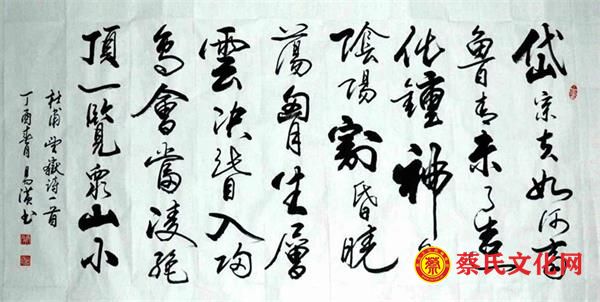 岱宗夫如何齊
魯青未了造
化鍾神秀
陰陽割昏曉
蕩胷生層
雲決眥入歸
鳥會當凌絕
頂一覽衆山小
杜甫望嶽詩一首
丁酉春月書
蔡
蔡氏文化网